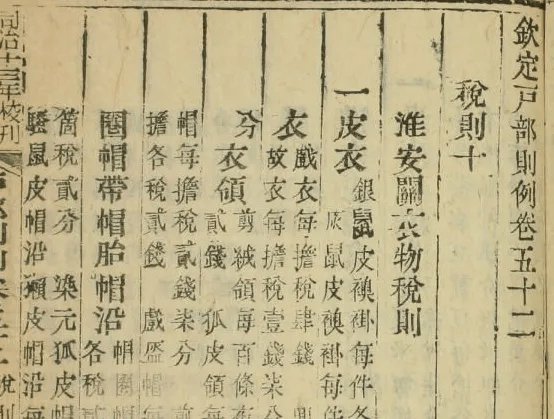 欽定戸部則例卷五十二
稅則十
淮安關衣物稅則
一皮衣 銀鼠皮襖褂每件各
灰鼠皮襖褂每件
衣 戲衣每擔稅肆錢
故衣每擔稅壹錢柒分
分 衣領 剪絨領每百條
貳錢 狐皮領每
帽每擔稅貳錢柒分
擔各稅貳錢 戲盔帽每
圈帽帶帽胎帽沿 帽圈
各稅
箇稅貳分 染元狐皮帽
騷鼠皮帽沿獺皮帽沿每
同治十三年校刊
稅則